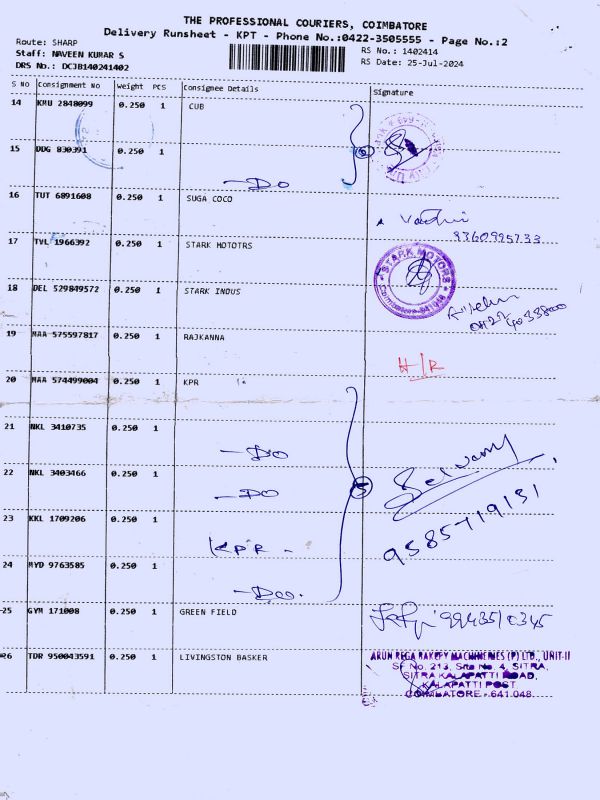 THE PROFESSIONAL COURIERS, COIMBATORE
Delivery Runsheet - KPT - Phone No.:0422-3505555 - Page No.:2
Route: SHARP
Staff: NAVEEN KUMAR S
DRS No.: DCJB140241402
RS No.: 1402414
RS Date: 25-Jul-2024
S No Consignment No Weight PCS Consignee Details Signature
14 KMU 2848099 0.250 1 CUB
15 DDG 830391 0.250 1
-DO
16 TUT 6891608 0.250 1 SUGA COCO
17 TVL 1966392 0.250 1 STARK MOTOTRS
STARK MOTORS
18 DEL 529849572 0.250 1 STARK INDUS
19 MAA 575597817 0.250 1 RAJKANNA
H/R
20 MAA 574499004 0.250 1 KPR
21 NKL 3410735 0.250 1
-DO
22 NKL 3403466 0.250 1
-DO
5
Selvamy
23 KKL 1709206 0.250 1
KPR -
9585719131
24 MYD 9763585 0.250 1
-Doo.
25 GYM 171008 0.250 1 GREEN FIELD
9943510345
26 TDR 950043591 0.250 1 LIVINGSTON BASKER
ARUN REGA BAKERY MACHINERIES (P) LTD., UNIT-II
SF No. 213, Site No. 4, SITRA,
SITRA KALAPATTI ROAD,
KALAPATTI POST
COIMBATORE - 641 048.